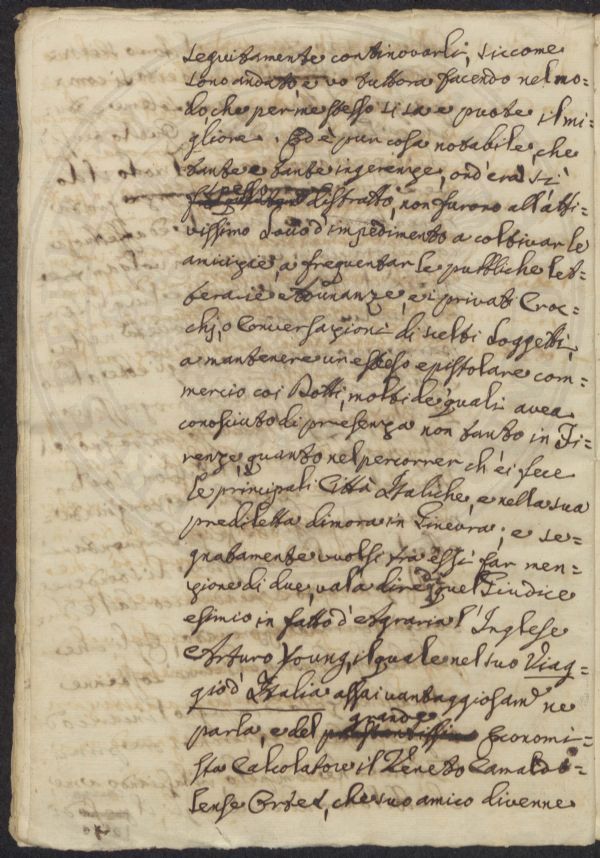 seguitamente continovarli, siccome
sono andato e vo tuttora facendo nel mo=
do che per me stesso si sa e puote il mi=
gliore. Ed è pur cosa notabile, che
tante e tante ingerenze, ond'era sì
spesso distratto, non furono all'atti=
vissimo d'impedimento a coltivar le
amicizie, a frequentar le pubbliche let=
terarie adunanze, e i privati Croc=
chj, o Conversazioni di scelti Soggetti,
a mantenere un esteso epistolare com=
mercio coi Dotti, molti de' quali avea
conosciuto di presenza non tanto in Fi=
renze, quanto nel percorrer ch'ei fece
le principali Città Italiche, e nella sua
prediletta dimora in Ginevra; e se=
gnatamente vuolsi fra essi far men=
zione di due, vale a dire di quel Giudice
esimio in fatto d'Agraria l'Inglese
Arturo Young, il quale nel suo Viag=
gio d'Italia assai vantaggiosam.e ne
parla, e del grande Economi=
sta Calcolatore il Veneto Camaldo=
lense Ortes, che suo amico divenne